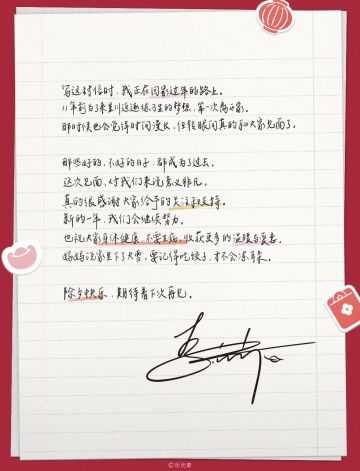 写这封信时，我正在回家过年的路上。
11年前为了来显川追逐练习生的梦想，第一次离开家。
那时候也会觉得时间漫长，但转眼间真的和大家见面了。
那些好的、不好的日子，都成为了过去。
这次见面，对我们来说意义非凡。
真的很感谢大家给予的关注和支持。
新的一年，我们会继续努力。
也祝大家身体健康，不要生病，收获更多的温暖与美意。
妈妈说家里下了大雪，要记得吃饺子，才不会冻耳朵。
除夕快乐，期待着下次再见。
©乐元素